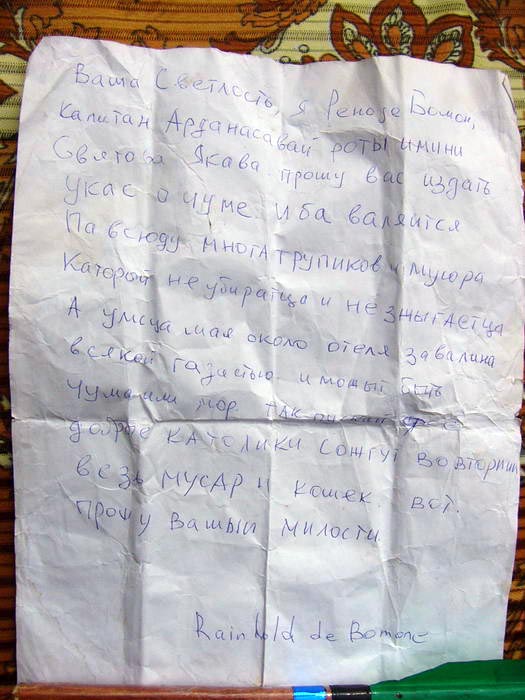 Ваша Светлость, я Реноде Бомон,
капитан Арданасавай роты имини
Святова Якава прошу вас издать
Указ о чуме ибо валяится
Павсюду многа трупиков и мусора
Каторый не убиратца и не зныгаетца
А улица мая около отеля завалина
всякей газастью и можыт быть
Чума или мор. так
добрые католики сожгут во вторник
везь мусар и кошек. вот.
прошу вашый милости.
Rainhold de Bomone